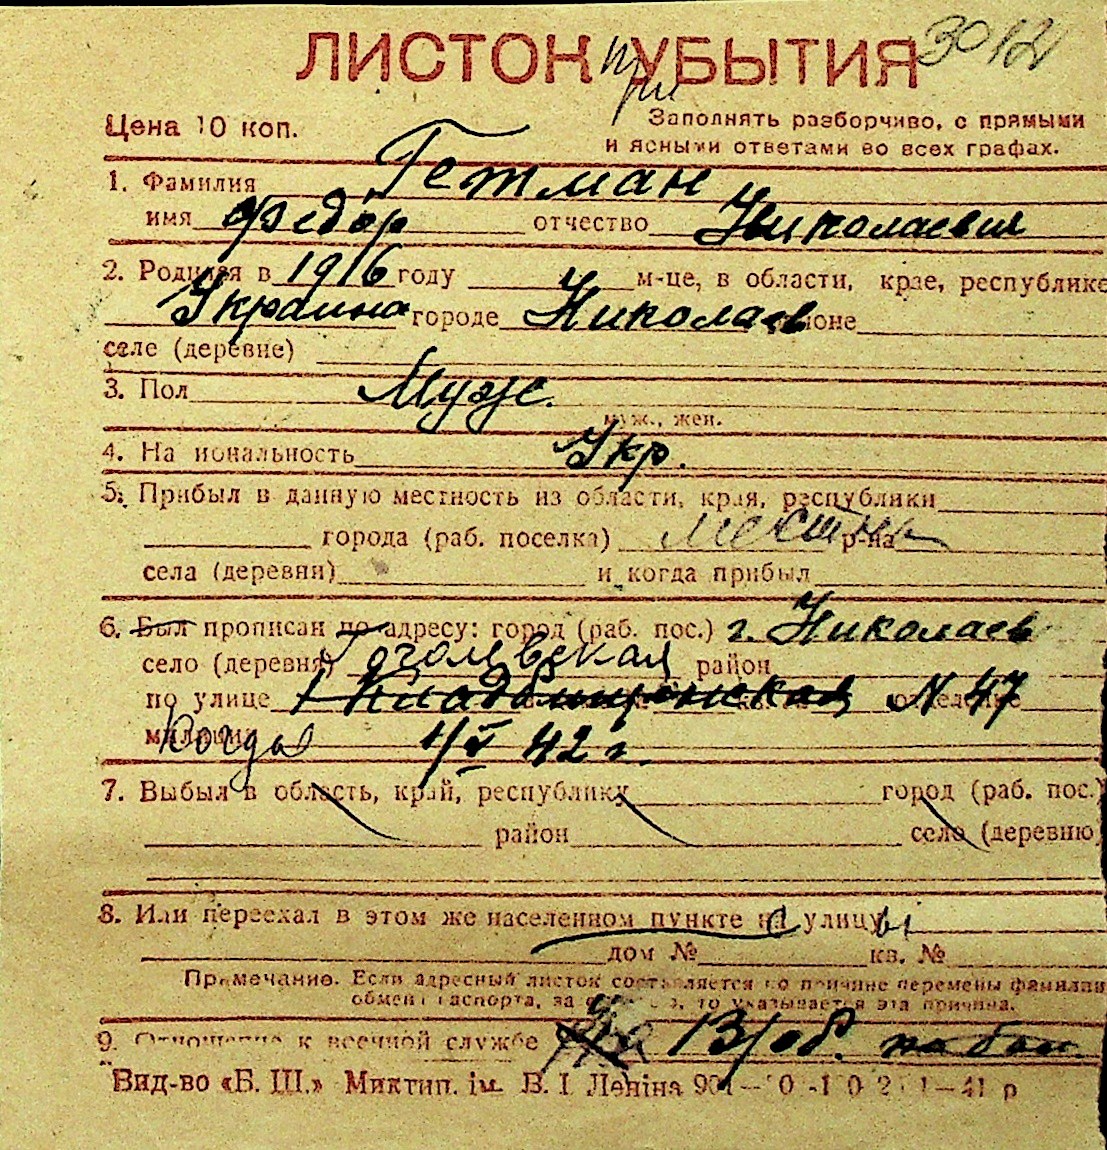 3012
ЛИСТОК при УБЫТИЯ
Цена 10 коп.
Заполнять разборчиво, с прямыми
и ясными ответами во всех графах.
1. Фамилия Гетман
имя Федор отчество Николаевич
2. Родился в 1916 году м-це, в области, крае, республике
Украина городе Николаев районе
селе (деревне)
3. Пол Муж.
муж., жен.
4. Национальность Укр.
5. Прибыл в данную местность из области, края, республики
города (раб. поселка) местный р-на
села (деревни) и когда прибыл
6. Был прописан по адресу: город (раб. пос.) г. Николаев
село (деревня) Гоголевская район
по улице N 47
Когда 1/V 42 г.
7. Выбыл в область, край, республику город (раб. пос.)
район село (деревню)
8. Или переехал в этом же населенном пункте на улицу
дом № кв. №
Примечание. Если адресный листок составляется по причине перемены фамилии
обмена паспорта, то указывается эта причина.
9. Отношение к военной службе
Вид-во «Б. Ш.» Миктип. ім. В. І Леніна